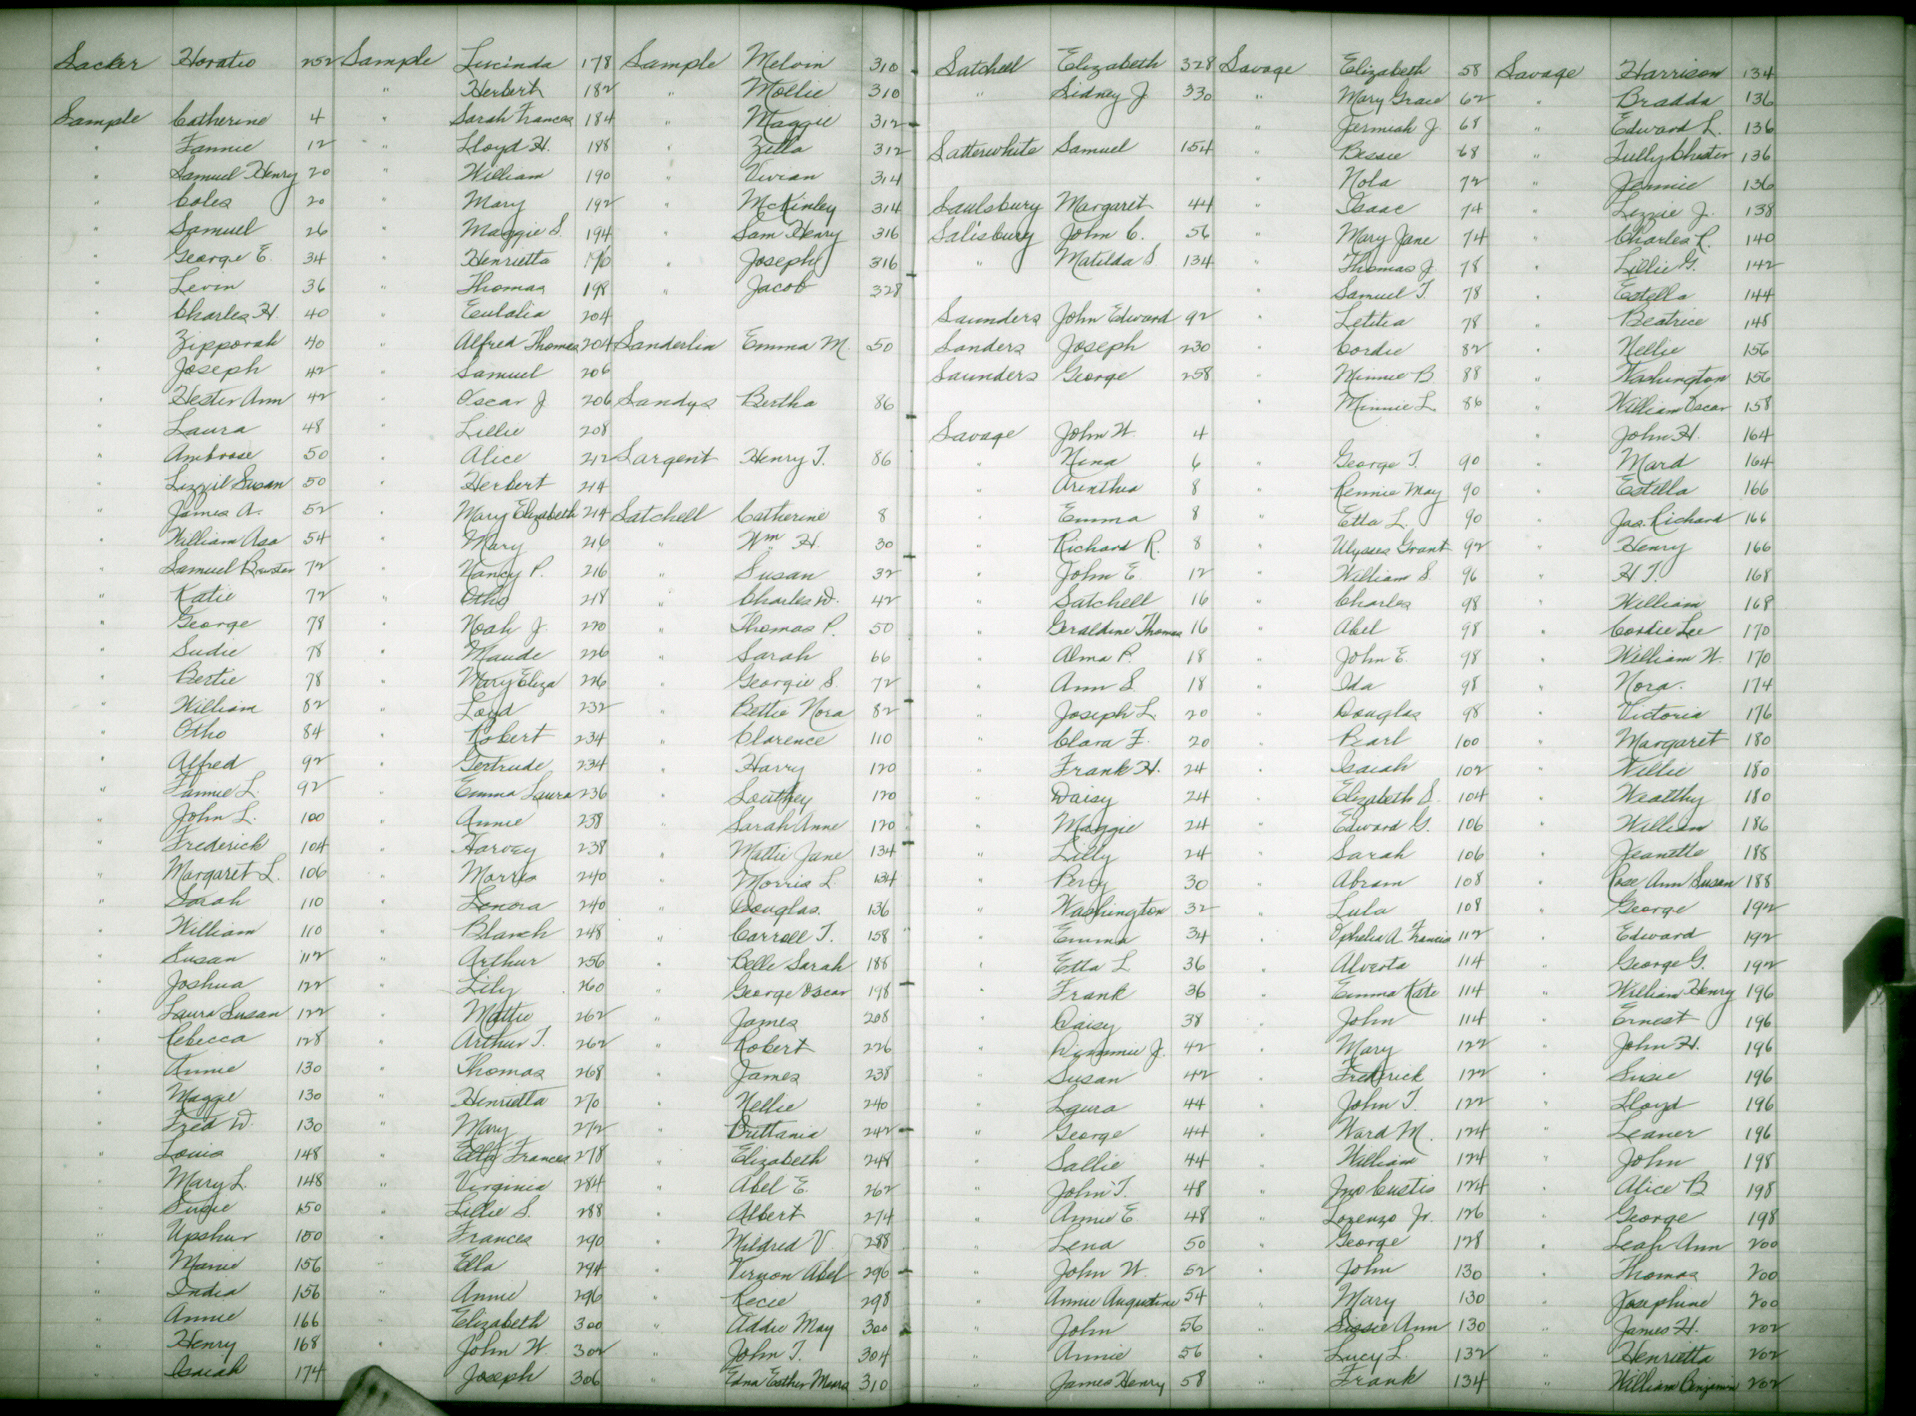 Sacker Horatio 252
Sample Catherine 4
" Fannie 12
" Samuel Henry 20
" Coles 20
" Samuel 26
" George E. 34
" Levin 36
" Charles H. 40
" Zipporah 40
" Joseph 42
" Hester Ann 42
" Laura 48
" Ambrose 50
" Lizzie Susan 50
" James A. 52
" William Asa 54
" Samuel Brewster 72
" Katie 72
" George 78
" Sudie 78
" Bertie 78
" William 82
" Otho 84
" Alfred 92
" Fannie L. 92
" John L. 100
" Frederick 104
" Margaret L. 106
" Sarah 110
" William 110
" Susan 112
" Joshua 122
" Laura Susan 122
" Rebecca 128
" Annie 130
" Maggie 130
" Fred W. 130
" Louis 148
" Mary L. 148
" Susie 150
" Upshur 150
" Mamie 156
" India 156
" Annie 166
" Henry 168
" Isaiah 174
Sample Lucinda 178
" Herbert 182
" Sarah Frances 184
" Lloyd H. 188
" William 190
" Mary 192
" Maggie S. 194
" Henrietta 196
" Thomas 198
" Eulalia 204
" Alfred Thomas 204
" Samuel 206
" Oscar J 206
" Lillie 208
" Alice 212
" Herbert 214
" Mary Elizabeth 214
" Mary 216
" Nancy P. 216
" Otho 218
" Noah J. 220
" Maude 226
" Mary Eliza 226
" Loyd 232
" Robert 234
" Gertrude 234
" Emma Laura 236
" Annie 238
" Harvey 238
" Morris 240
" Lenora 240
" Blanch 248
" Arthur 256
" Lily 260
" Mattie 262
" Arthur T. 262
" Thomas 268
" Henrietta 270
" Mary 272
" Ella Frances 278
" Virginia 284
" Lillie S. 288
" Frances 290
" Ella 294
" Annie 296
" Elizabeth 300
" John W. 302
" Joseph 306
Sample Melvin 310
" Mollie 310
" Maggie 312
" Zella 312
" Vivian 314
" McKinley 314
" Sam Henry 316
" Joseph 316
" Jacob 328
Sanderlin Emma M. 50
Sandys Bertha 86
Sargent Henry T. 86
Satchell Catherine 8
" Wm H. 30
" Susan 32
" Charles W. 42
" Thomas P. 50
" Sarah 66
" Georgie S. 72
" Bettie Nora 82
" Clarence 110
" Harry 120
" Southey 120
" Sarah Anne 120
" Mattie Jane 134
" Morris L. 134
" Douglas. 136
" Carroll T. 158
" Belle Sarah 188
" George Oscar 198
" James 208
" Robert 226
" James 238
" Nellie 240
" Brittania 242
" Elizabeth 248
" Abel E. 262
" Albert 274
" Mildred V 288
" Vernon Abel 296
" Recie 298
" Addie May 300
" John T. 304
" Edna Esther Mears 310
Satchell Elizabeth 328
" Sidney J. 330
Satterwhite Samuel 154
Saulsbury Margaret 44
Salisbury John C. 56
" Matilda S 134
Saunders John Edward 92
Sanders Joseph 230
Saunders George 258
Savage John W. 4
" Nina 6
" Arinthia 8
" Emma 8
" Richard R. 8
" John E. 12
" Satchell 16
" Geraldine Thomas 16
" Alma P. 18
" Ann S. 18
" Joseph L. 20
" Clara F. 20
" Frank H. 24
" Daisy 24
" Maggie 24
" Lilly 24
" Percy 30
" Washington 32
" Emma 34
" Etta L 36
" Frank 36
" Daisy 38
" J. 42
" Susan 42
" Laura 44
" George 44
" Sallie 44
" John T. 48
" Annie E 48
" Lena 50
" John W. 52
" Annie Augustine 54
" John 56
" Annie 56
" James Henry 58
Savage Elizabeth 58
" Mary Grace 62
" Jermiah J. 68
" Bessie 68
" Nola 72
" Isaac 74
" Mary Jane 74
" Thomas J. 78
" Samuel T. 78
" Letitia 78
" Cordie 82
" Minnie B. 88
" Minnie L. 86
" George T. 90
" Rennie May 90
" Etta L. 90
" Ulysses Grant 92
" William S. 96
" Charles 98
" Abel 98
" John E. 98
" Ida 98
" Douglas 98
" Pearl 100
" Isaiah 102
" Elizabeth S. 104
" Edward G. 106
" Sarah 106
" Abram 108
" Lula 108
" Ophelia A. Francis 112
" Alverta 114
" Emma Kate 114
" John 114
" Mary 122
" Frederick 122
" John T. 122
" Ward M. 124
" William 124
" Jno Custis 124
" Lorenzo Jr. 126
" George 128
" John 130
" Mary 130
" Sissie Ann 130
" Lucy L. 132
" Frank 134
Savage Harrison 134
" Bradda 136
" Edward L. 136
" Tully Chester 136
" Jennie 136
" Lizzie J. 138
" Charles L. 140
" Lillie G. 142
" Estella 144
" Beatrice 148
" Nellie 156
" Washington 156
" William Oscar 158
" John H. 164
" Mard 164
" Estella 166
" Jas. Richard 166
" Henry 166
" H T. 168
" William 168
" Cordie Lee 170
" William W. 170
" Nora. 174
" Victoria 176
" Margaret 180
" Willie 180
" Wealthy 180
" William 186
" Jeanette 188
" Rose Ann Susan 188
" George 192
" Edward 192
" George G. 192
" William Henry 196
" Ernest 196
" John H. 196
" Susie 196
" Lloyd 196
" Leaner 196
" John 198
" Alice B 198
" George 198
" Leah Ann 200
" Thomas 200
" Josephine 200
" James H. 202
" Henrietta 202
" William Benjamin 202